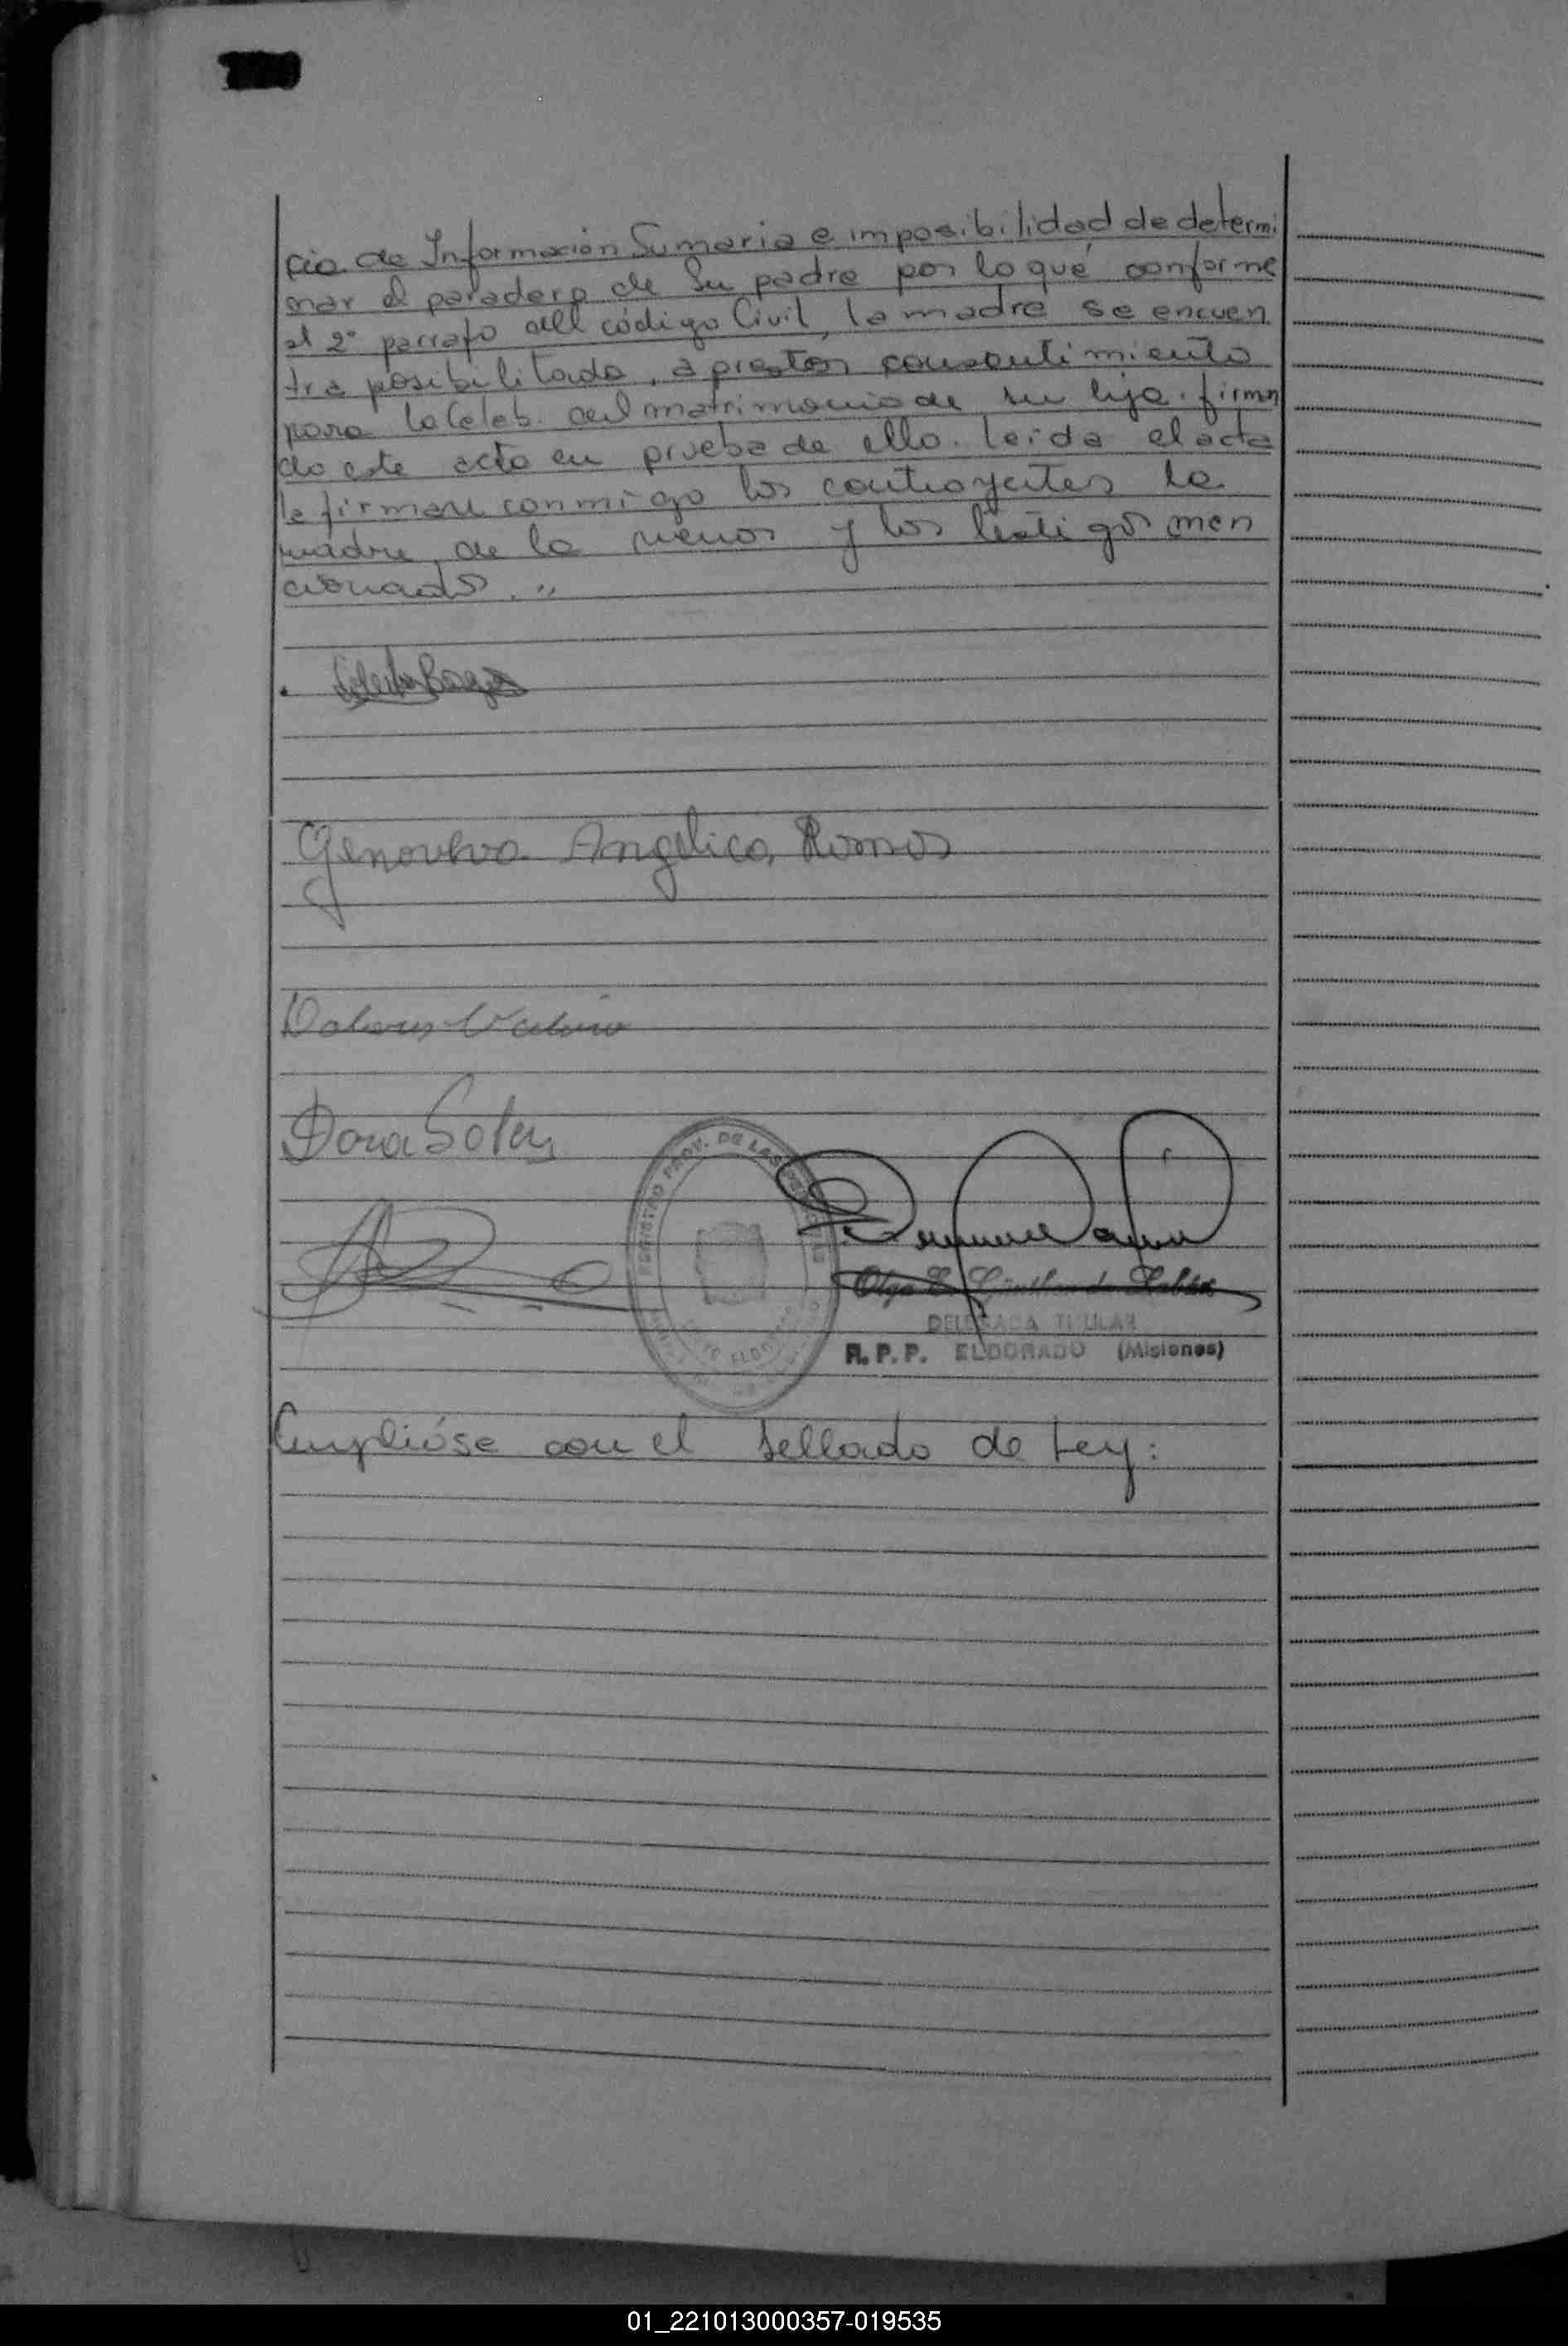 cia de Información Sumaria e imposibilidad de determi
nar el paradero de su padre por lo qué conforme
al 2º parrafo del código Civil, la madre se encuen
tra posibilitada, a prestar consentimiento
para la Celeb. del matrimonio de su hija. firman
do este acto en prueba de ello. Leída el acta
la firman conmigo los contrayentes la
madre de la menor y los testigos men
cionados. "
Genoveva Angelica Ramos
Dora Soley
REGISTRO PROV. DE LAS PERSONAS
ELDORADO
Olga E.
DELEGADA TITULAR
R. P. P. ELDORADO (Misiones)
Cumplióse con el sellado de Ley:
01_221013000357-019535